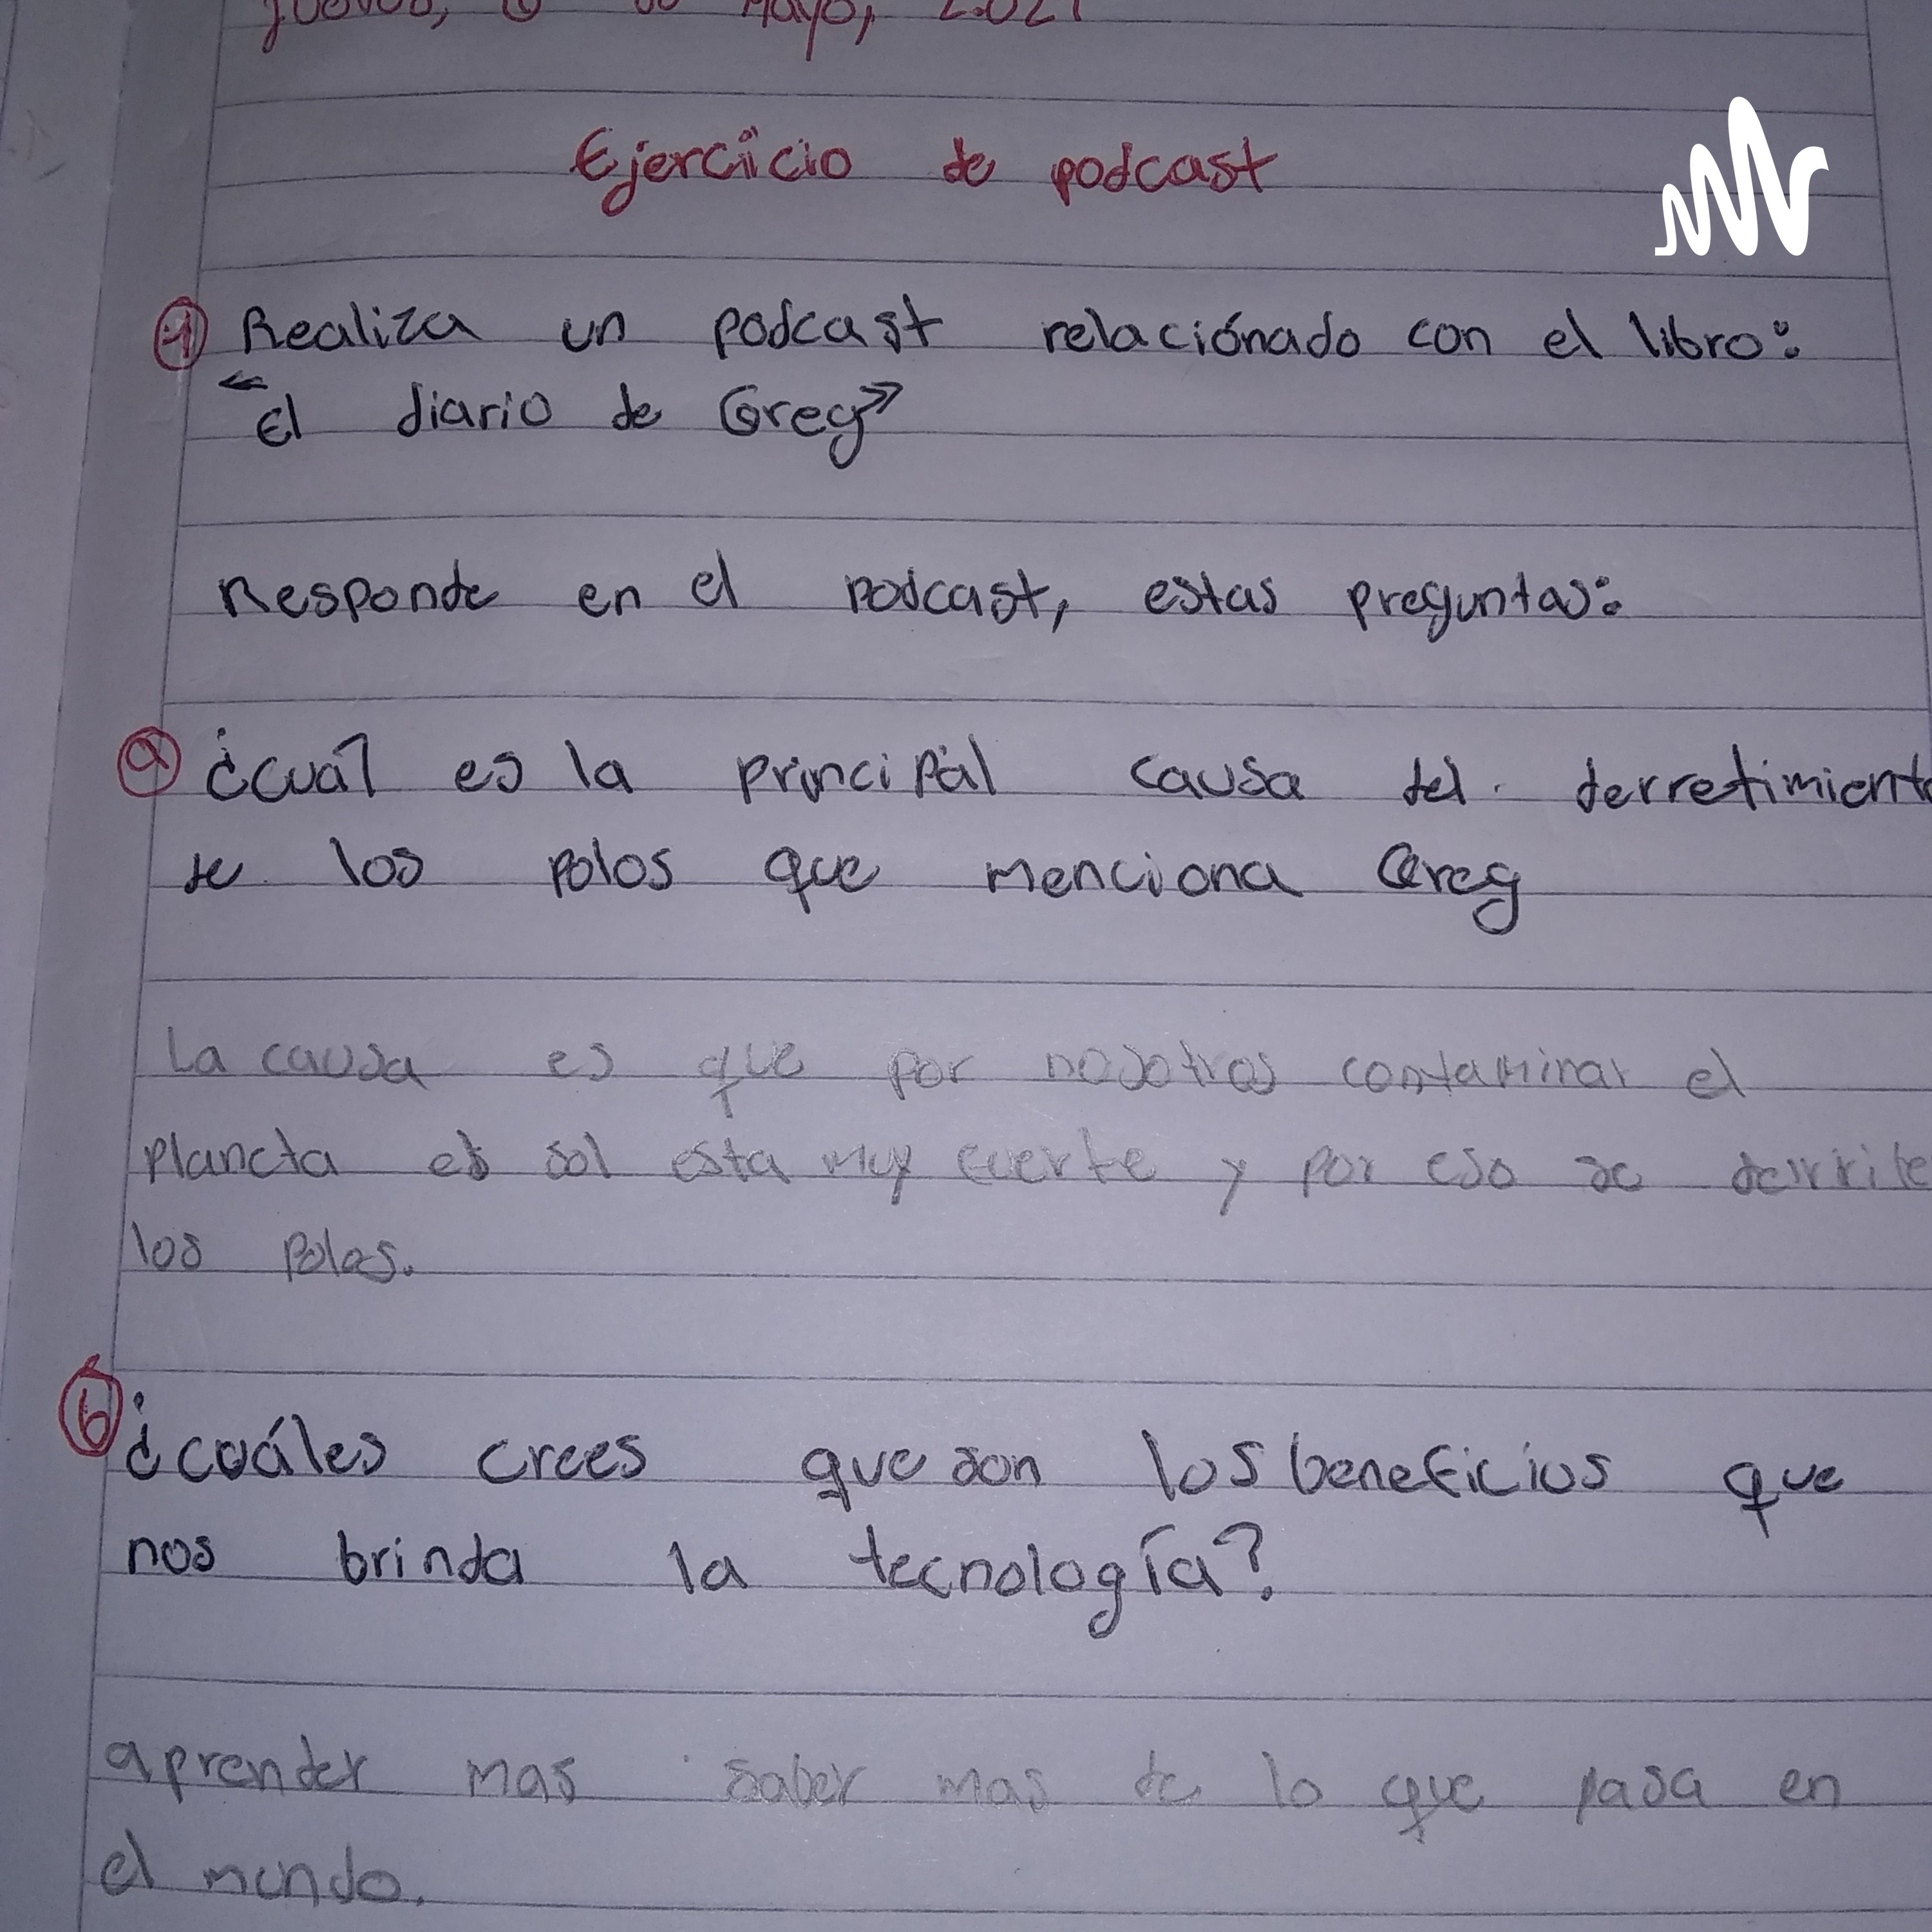 Mayo, 2.021
Ejercicio de podcast
1 Realiza un podcast relaciónado con el libro:
"El diario de Greg"
Responde en el podcast, estas preguntas:
a ¿cuál es la principal causa del derretimient
de los polos que menciona Greg
La causa es que por nosotros contaminar el
planeta el sol esta muy fuerte y por eso se derrite
los polos.
b ¿cuáles crees que son los beneficios que
nos brinda la tecnología?
aprender mas saber mas de lo que pasa en
el mundo.